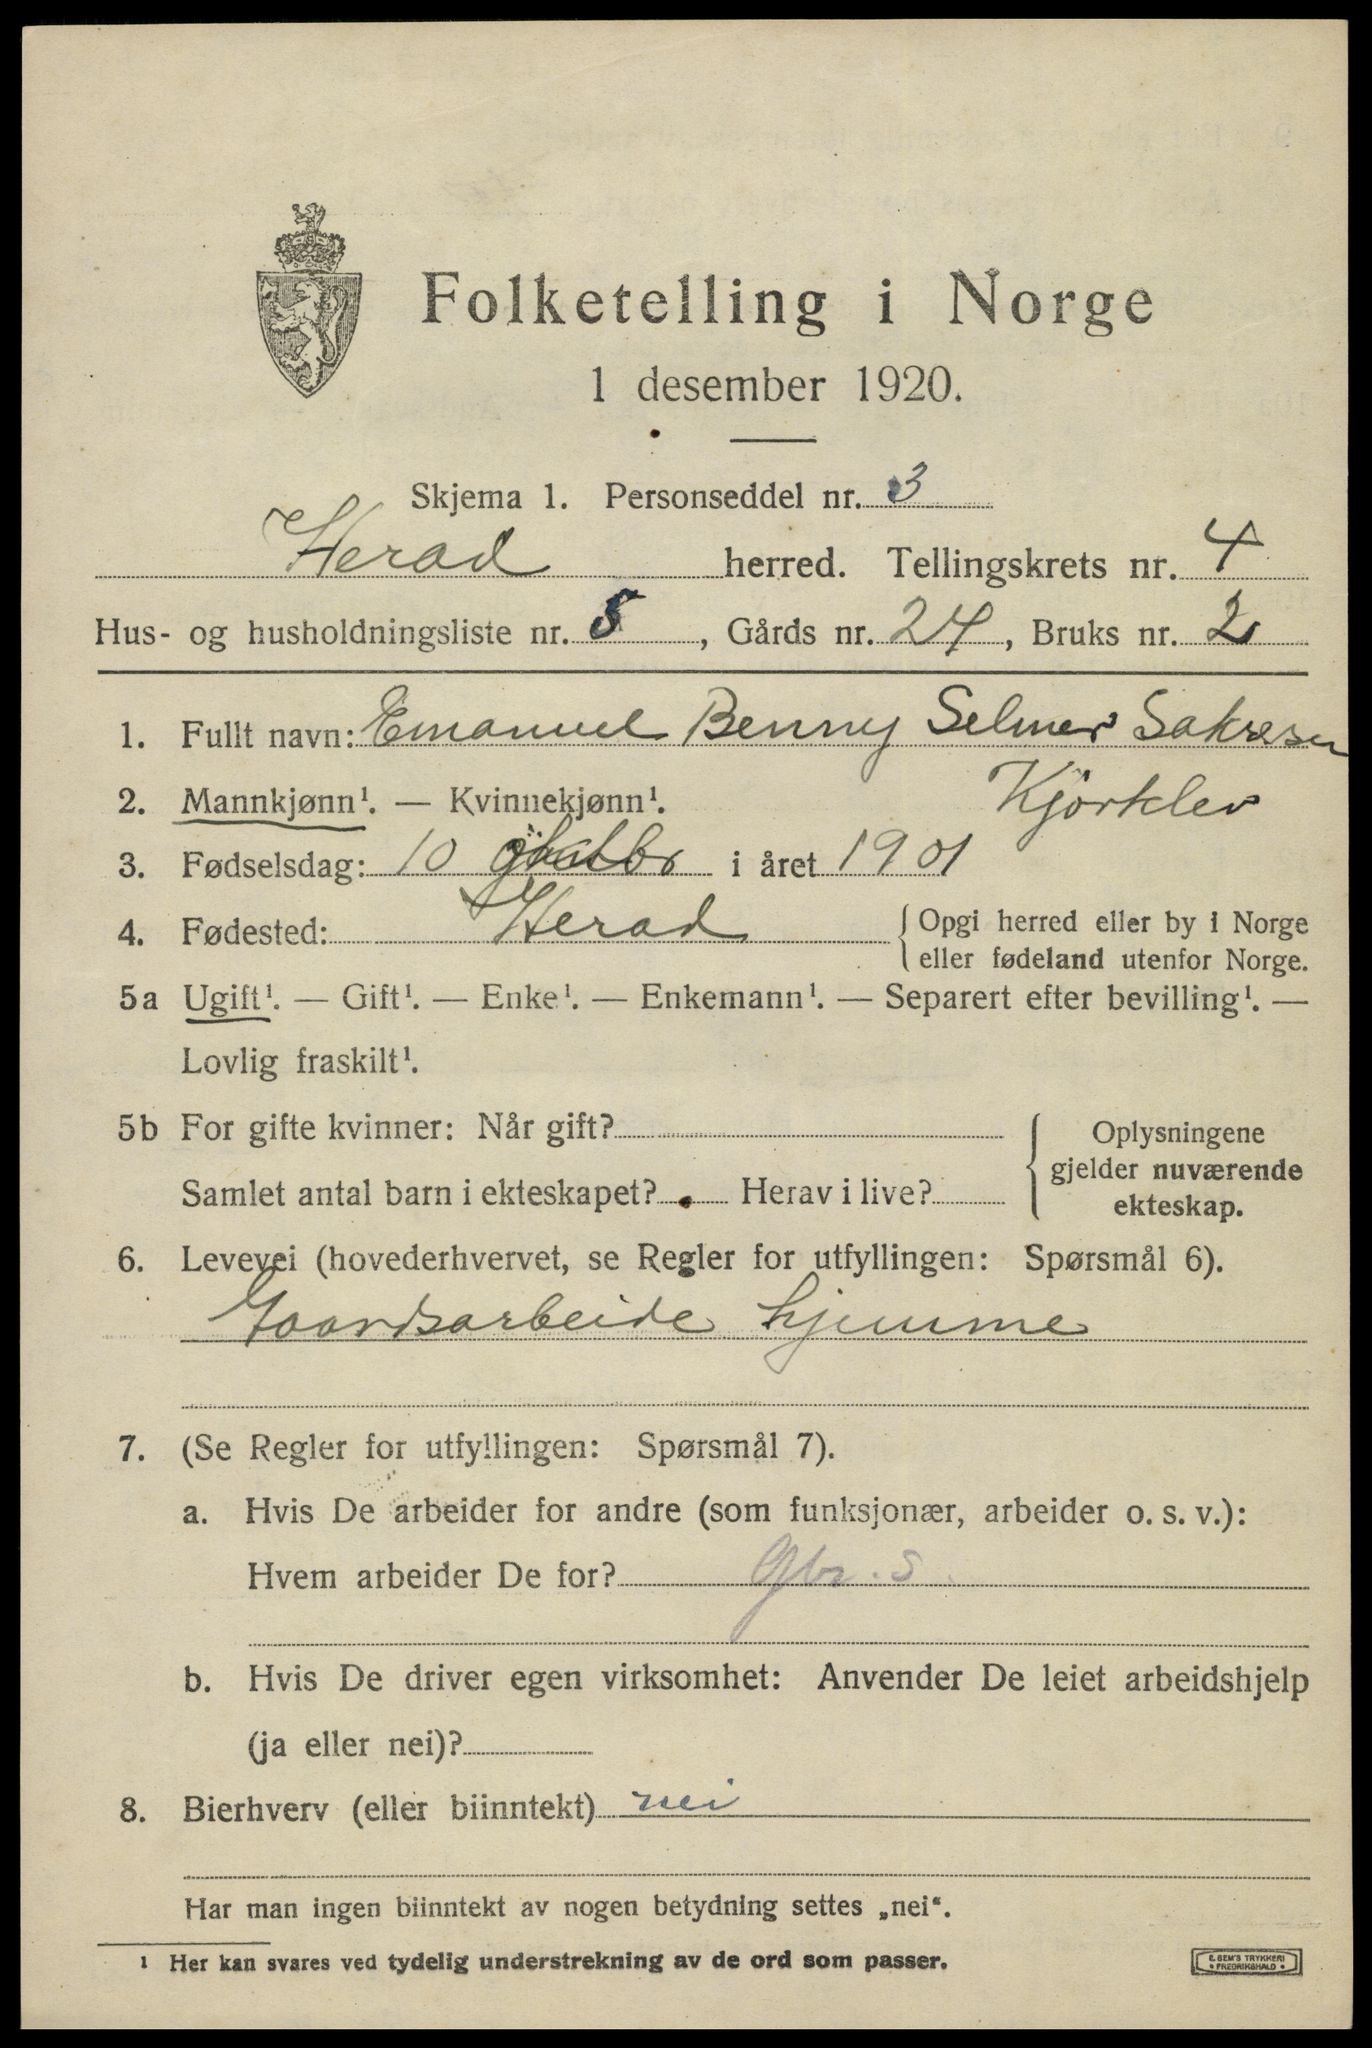 Folketelling i Norge
1 desember 1920.
Skjema 1. Personseddel nr. 3
Herad herred. Tellingskrets nr. 4
Hus- og husholdningsliste nr. 5, Gårds nr. 24, Bruks nr. 2
1. Fullt navn: Emanuel Benny Selmer Sakresen
Kjörklev
2. Mannkjønn¹. — Kvinnekjønn¹.
3. Fødselsdag: 10 i året 1901
4. Fødested: Herad { Opgi herred eller by i Norge
eller fødeland utenfor Norge.
5a Ugift¹. — Gift¹. — Enke¹. — Enkemann¹. — Separert efter bevilling¹. —
Lovlig fraskilt¹.
5b For gifte kvinner: Når gift?
Samlet antal barn i ekteskapet? Herav i live?
{ Oplysningene
gjelder nuværende
ekteskap.
6. Levevei (hovederhvervet, se Regler for utfyllingen: Spørsmål 6).
Gaardsarbeide hjemme
7. (Se Regler for utfyllingen: Spørsmål 7).
a. Hvis De arbeider for andre (som funksjonær, arbeider o. s. v.):
Hvem arbeider De for? Gbr. s
b. Hvis De driver egen virksomhet: Anvender De leiet arbeidshjelp
(ja eller nei)?
8. Bierhverv (eller biinntekt) nei
Har man ingen biinntekt av nogen betydning settes „nei“.
¹ Her kan svares ved tydelig understrekning av de ord som passer.
E. SEM'S TRYKKERI
• FREDRIKSHALD •